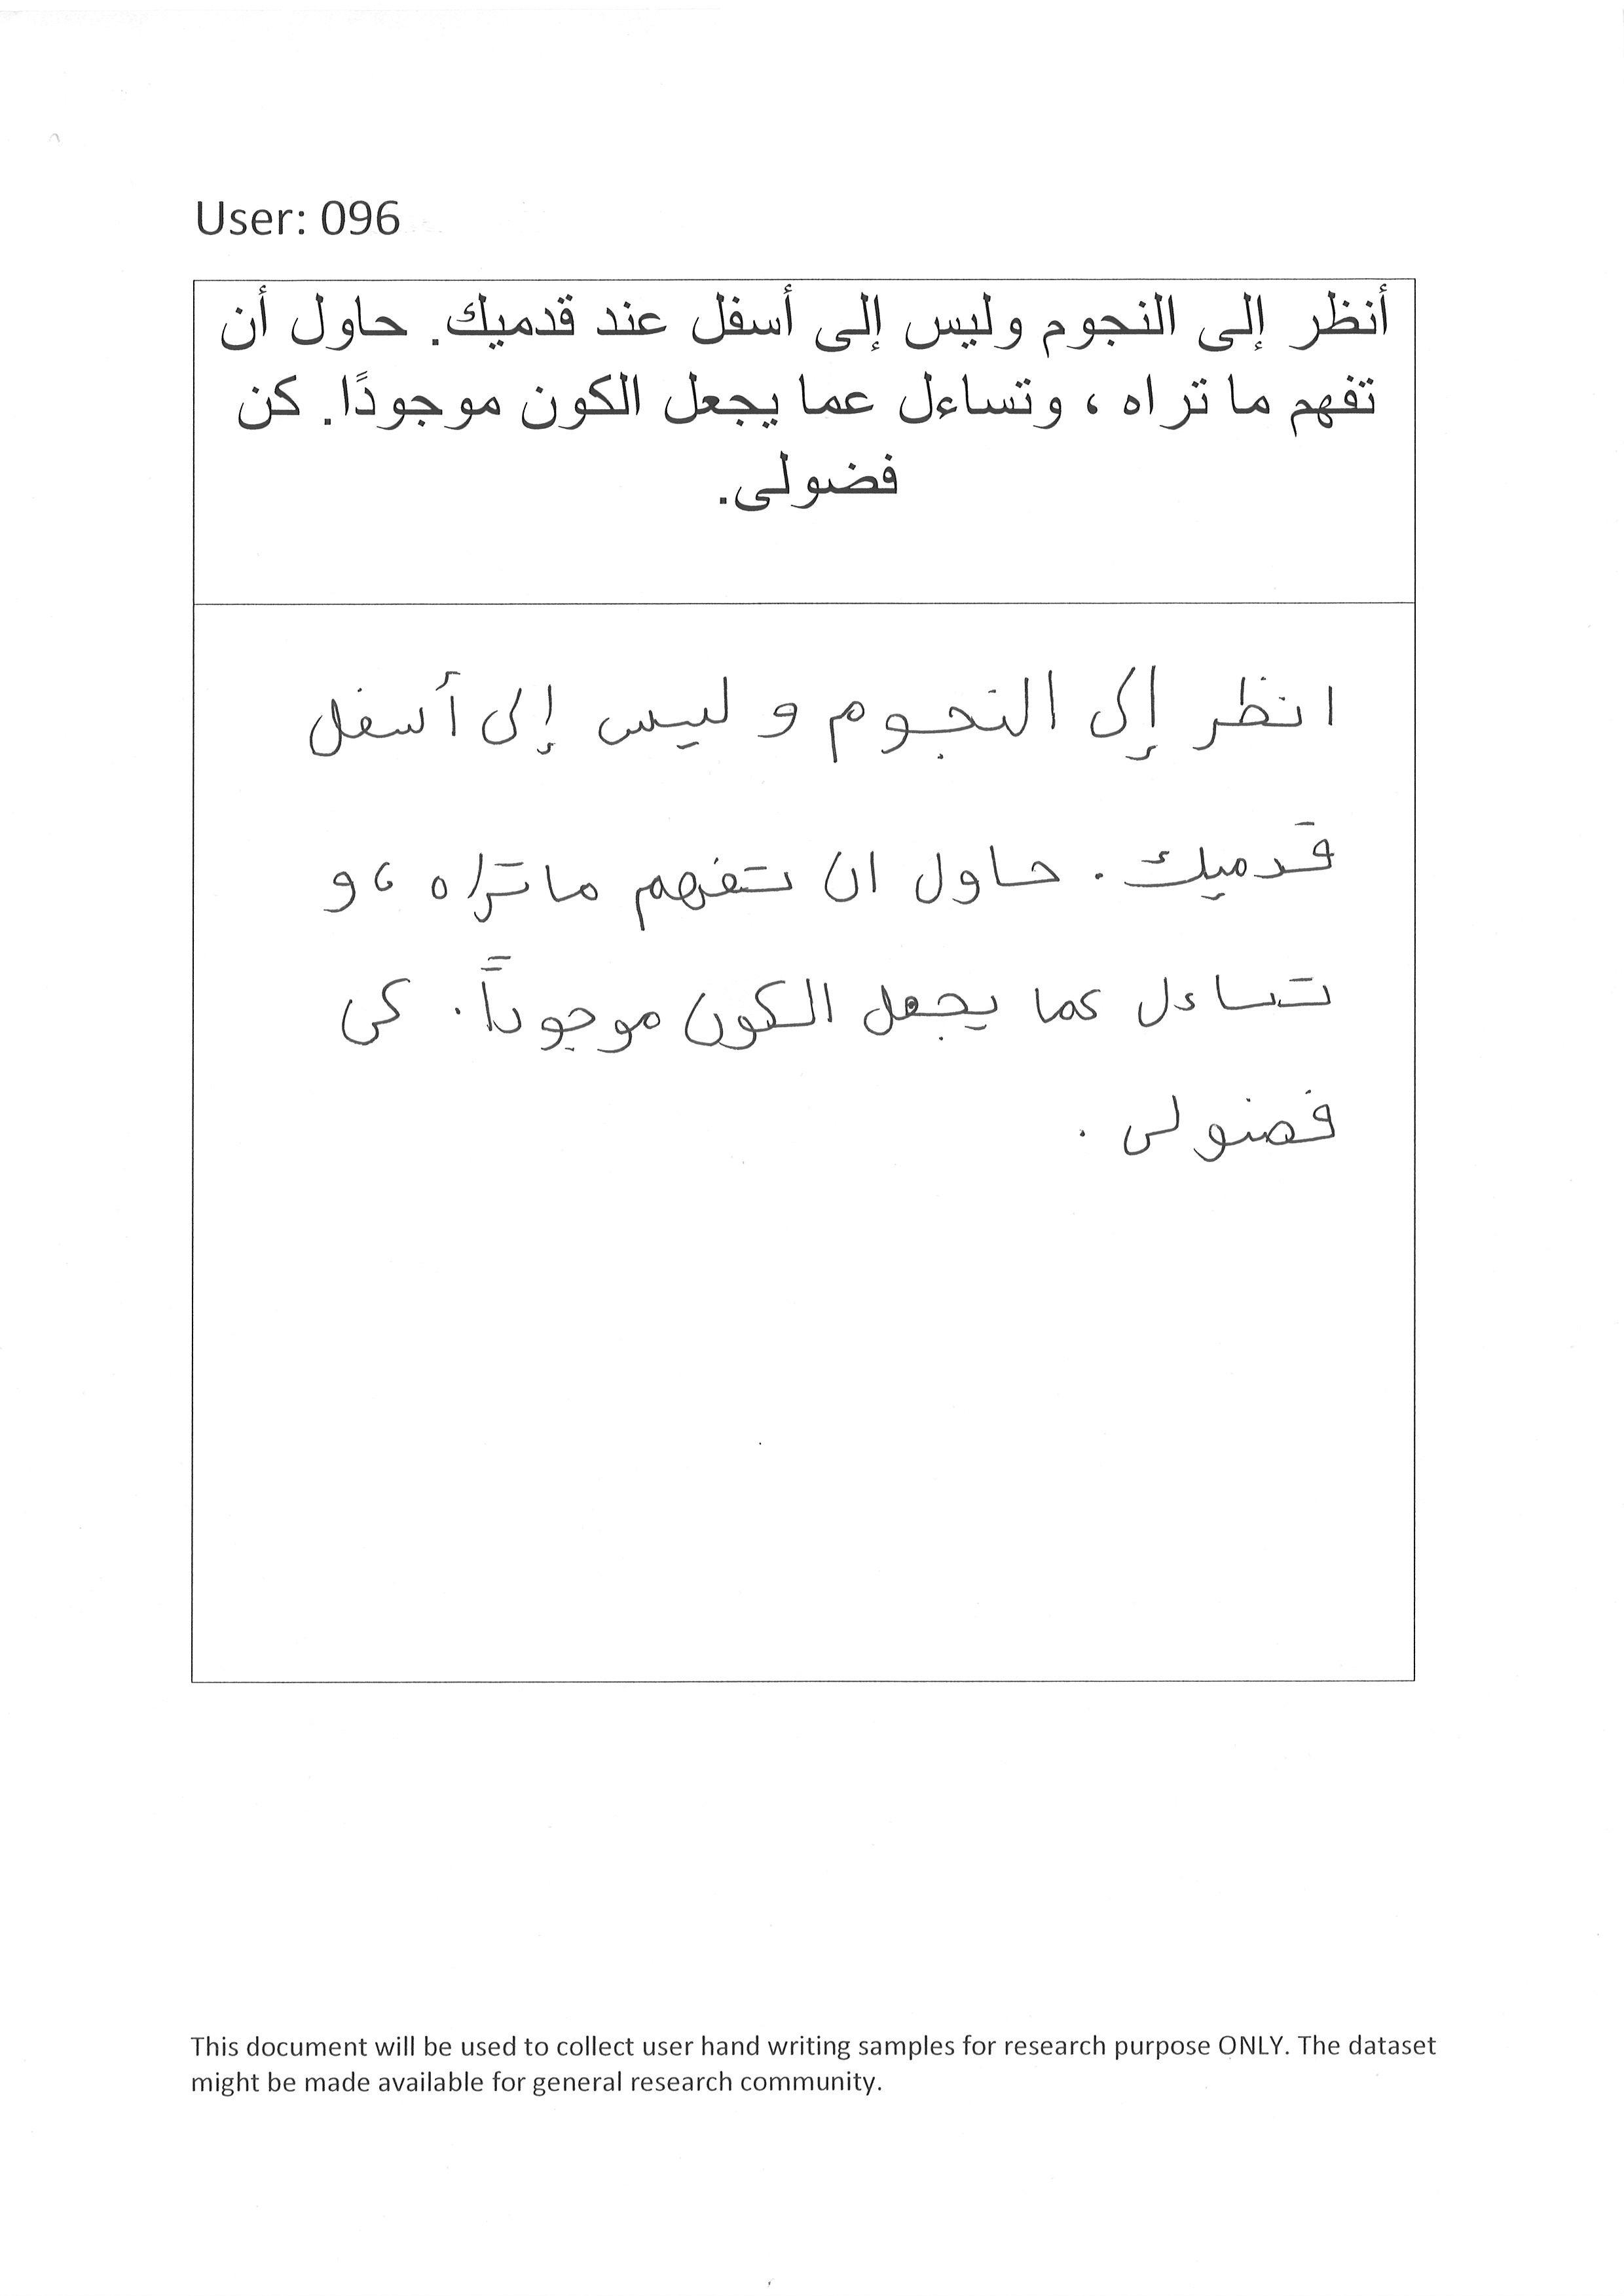 User: 096
أنظر إلى النجوم وليس إلى أسفل عند قدميك. حاول أن
تفهم ما تراه ، وتساءل عما يجعل الكون موجودًا. كن
فضولى.
انظر إلى النجوم و ليس إلى أسفل
قدميك . حاول ان تفهم ما تراه ، و
تساءل عما يجعل الكون موجوداً . كن
فضولى .
This document will be used to collect user hand writing samples for research purpose ONLY. The dataset
might be made available for general research community.